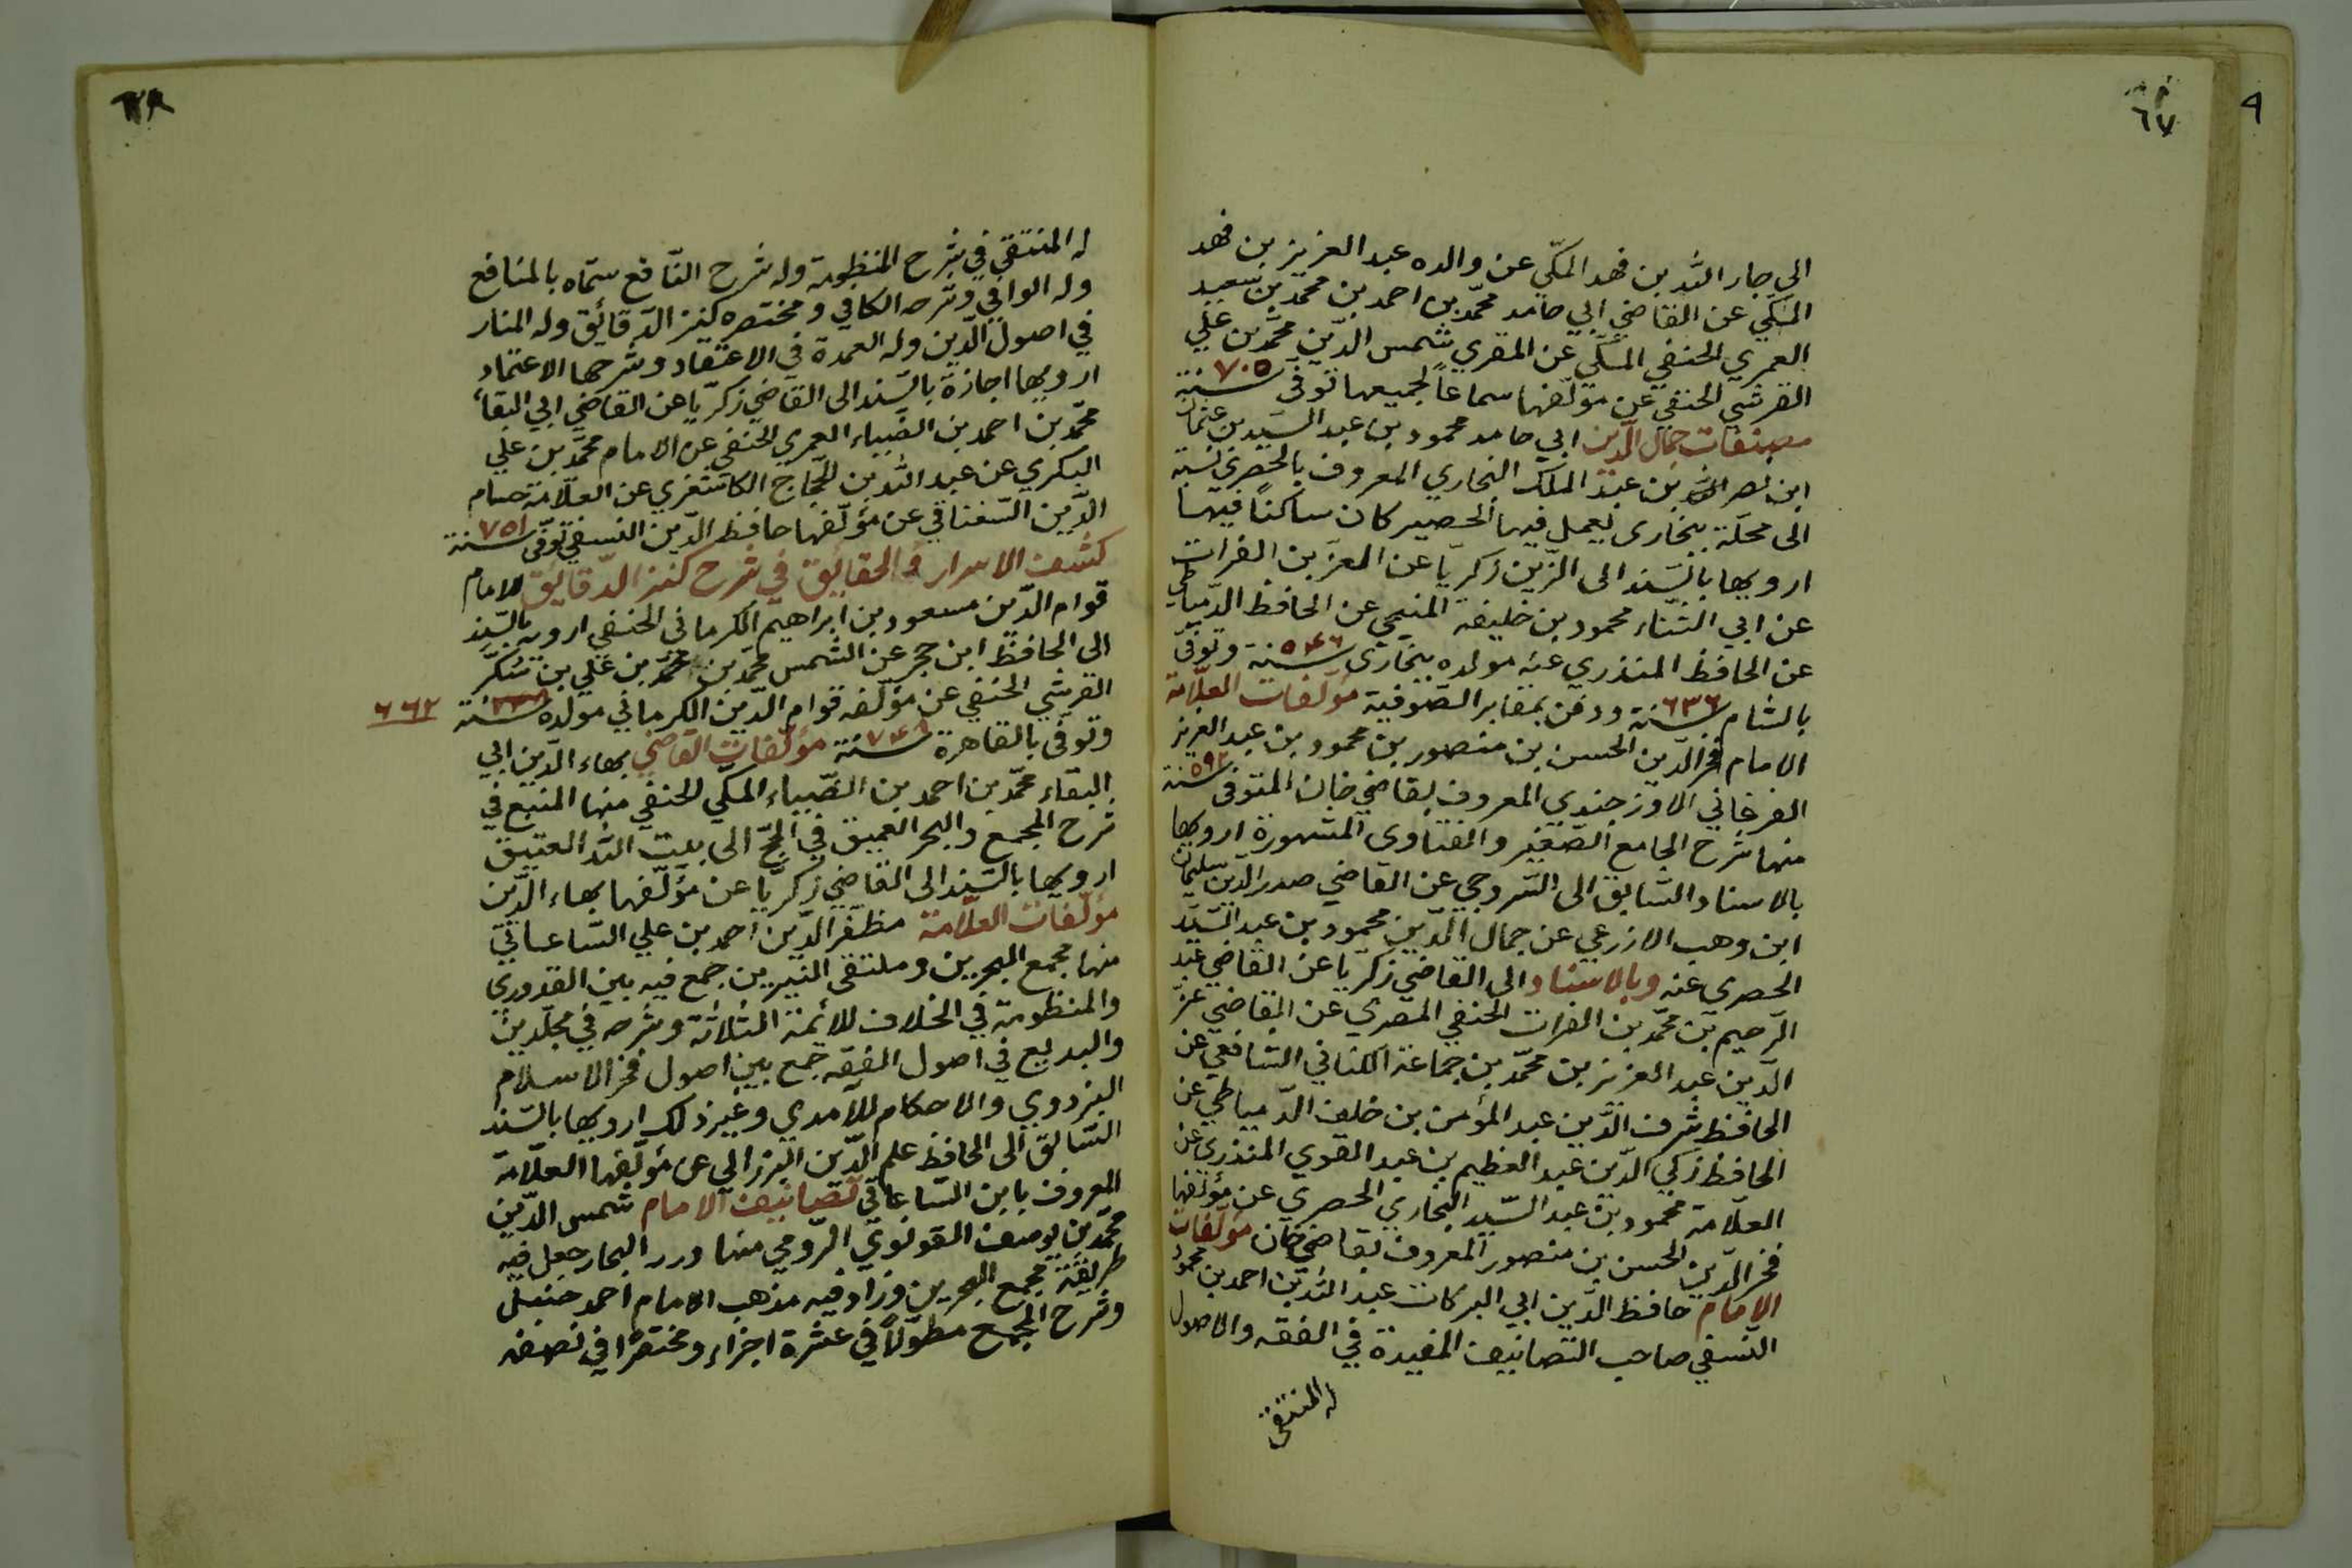 ٦٧
٩
الي جار الله بن فهد المكّي عن والده عبد العزيز بن فهد
المكي عن القاضي ابي حامد محمّد بن احمد بن محمد بن سعيد
العمري الحنفي المكّي عن المقري شمس الدّين محمّد بن علي
القرشي الحنفي عن مؤلّفها سماعاً لجميعها توفّى سنة ٧٠٥
مصنفات جمال الدّين ابي حامد محمود بن عبد السّيد بن عثمان
ابن نصر الله بن عبد الملك البخاري المعروف بالحصري نسبة
الى محلّة ببخارى يعمل فيها الحصير كان ساكناً فيها
ارويها بالسّند الى الزّين زكريّا عن العز بن الفرات
عن ابي الثّناء محمود بن خليفه المنبجي عن الحافظ الدّمياطي
عن الحافظ المنذري عنه مولده ببخارى سنة ٥٤٦ وتوفّى
بالشام سنة ٦٣٦ ودفن بمقابر الصّوفية مؤلّفات العلّامة
الامام فخر الدّين الحسن بن منصور بن محمود بن عبد العزيز
الفرغاني الاوزجندي المعروف بقاضي خان المتوفى سنة ٥٩٢
منها شرح الجامع الصّغير والفتاوى المشهورة ارويها
بالاسناد السّابق الى السّروجي عن القاضي صدر الدّين سليمان
ابن وهب الازرعي عن جمال الدّين محمود بن عبد السّيّد
الحصري عنه وبالاسناد الى القاضي زكريّا عن القاضي عبد
الرّحيم بن محمّد بن الفرات الحنفي المصري عن القاضي عزّ
الدّين عبد العزيز بن محمّد بن جماعة الكناني الشافعي عن
الحافظ شرف الدّين عبد المؤمن بن خلف الدّمياطي عن
الحافظ زكي الدّين عبد العظيم بن عبد القوي المنذري عن
العلّامة محمود بن عبد السّيد البخاري الحصري عن مؤلفها
فخر الدّين الحسن بن منصور المعروف بقاضي خان مؤلّفات
الامام حافظ الدّين ابي البركات عبد الله بن احمد بن محمود
النّسفي صاحب التصانيف المفيدة في الفقه والاصول
له المنتقى
٦٨
له المنتقي في شرح المنظومة وله شرح النّافع سمّاه بالمنافع
وله الوافي وشرحه الكافي ومختصره كنز الدّقائق وله المنار
في اصول الدّين وله العمدة في الاعتقاد وشرحها الاعتماد
ارويها اجازة بالسّند الى القاضي زكريّا عن القاضي ابي البقاء
محمّد بن احمد بن الضّياء العمري الحنفي عن الامام محمّد بن علي
البكري عن عبد الله بن الحجاج الكاشغري عن العلّامة حسام
الدّين السّغناقي عن مؤلّفها حافظ الدّين النسفي توفّى سنة ٧٥١
كشف الاسرار والحقايق في شرح كنز الدّقايق للامام
قوام الدّين مسعود بن ابراهيم الكرماني الحنفي ارويه بالسّند
الى الحافظ ابن حجر عن الشمس محمّد بن محمّد بن علي بن سكر
القرشي الحنفي عن مؤلّفه قوام الدّين الكرماني مولده سنة
٦٦٢
وتوفّى بالقاهرة سنة ٧٤٨ مؤلّفات القاضي بهاء الدّين ابي
البقاء محمّد بن احمد بن الضّياء المكّي الحنفي منها المنبع في
شرح المجمع والبحر العميق في الحجّ الى بيت الله العتيق
ارويها بالسّند الى القاضي زكريّا عن مؤلّفها بهاء الدّين
مؤلّفات العلّامة مظفّر الدّين احمد بن علي السّاعاتي
منها مجمع البحرين وملتقى النّيرين جمع فيه بين القدوري
والمنظومة في الخلاف للائمة الثلاثة وشرحه في مجلّدين
والبديع في اصول الفقه جمع بين اصول فخر الاسلام
البزدوي والاحكام للآمدي وغير ذلك ارويها بالسّند
السّابق الى الحافظ علم الدّين البرزالي عن مؤلّفها العلّامة
المعروف بابن السّاعاتي تصانيف الامام شمس الدّين
محمّد بن يوسف القونوي الرّومي منها درر البحار جعل فيه
طريقة مجمع البحرين وزاد فيه مذهب الامام احمد حنبل
وشرح المجمع مطوّلاً في عشرة اجزاء ومختصرًا في نصفه